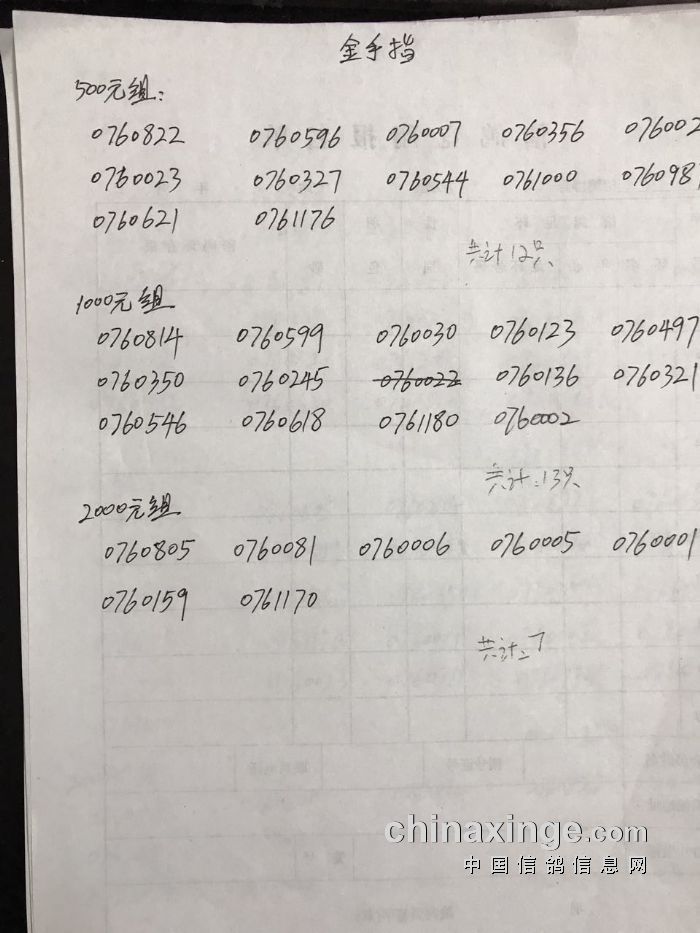 金手挡
500元组:
0760822 0760596 0760007 0760356 076002
0760023 0760327 0760544 0761000 076098
0760621 0761176
共计12只
1000元组
0760814 0760599 0760030 0760123 0760497
0760350 0760245 0760022 0760136 0760321
0760546 0760618 0761180 0760002
共计:13只
2000元组
0760805 0760081 0760006 0760005 0760001
0760159 0761170
共计:7
chinaxinge.com
中国信鸽信息网